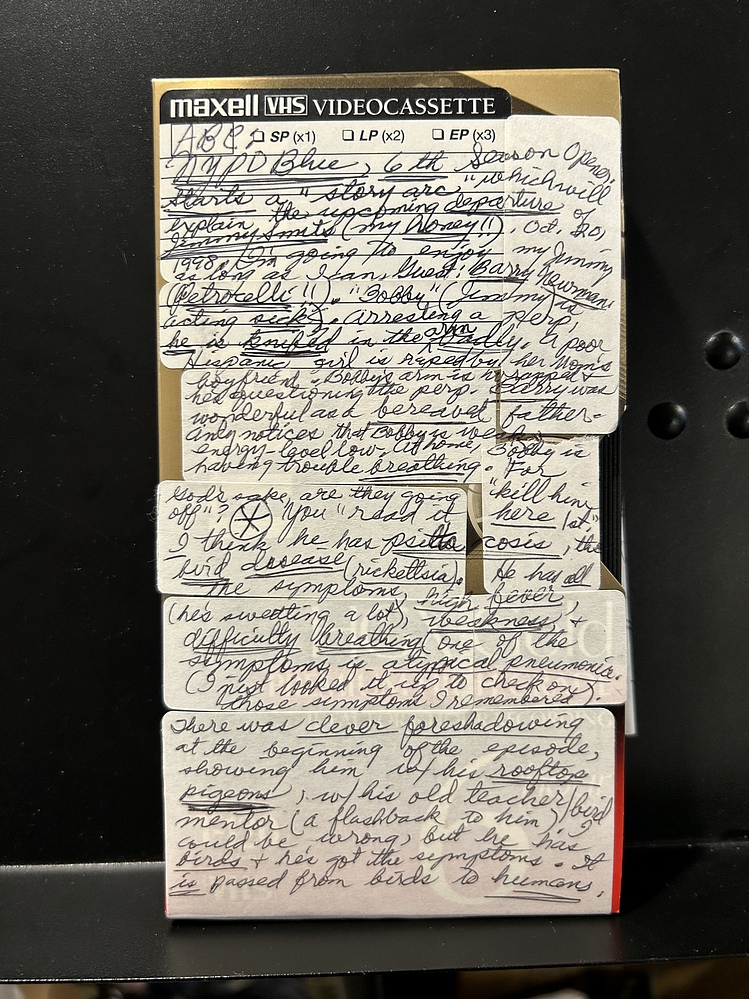 maxell VHS VIDEOCASSETTE
ABC, ☐ SP (x1) ☐ LP (x2) ☐ EP (x3)
NYPD Blue, 6th Season Opener,
Starts a "story arc" which will
explain the upcoming departure of
Jimmy Smits (my honey!!), Oct. 20,
1998. I'm going to enjoy my Jimmy
as long as I can, Guest: Barry Newman,
(Petrocelli!!). "Bobby" (Jimmy) is
acting sick, arresting a perp,
he is knifed in the arm badly. A poor
Hispanic girl is raped by her Mom's
boyfriend. Bobby's arm is wrapped &
he's questioning the perp. Barry was
wonderful as a bereaved father-
Andy notices that Bobby is weak,
energy-level low. At home, Bobby is
having trouble breathing. For
God's sake, are they going "kill him
off"? You "read it here 1st,"
I think he has psittacosis, the
bird disease (rickettsia). He has all
the symptoms, high fever,
(he's sweating a lot), weakness, &
difficulty breathing (one of the
symptoms is atypical pneumonia.
(I just looked it up to check on)
those symptoms I remembered
There was clever foreshadowing
at the beginning of the episode,
showing him w/ his rooftop
pigeons, w/ his old teacher/bird
mentor (a flashback to him) I
could be wrong, but he has
birds & he's got the symptoms. It
is passed from birds to humans.